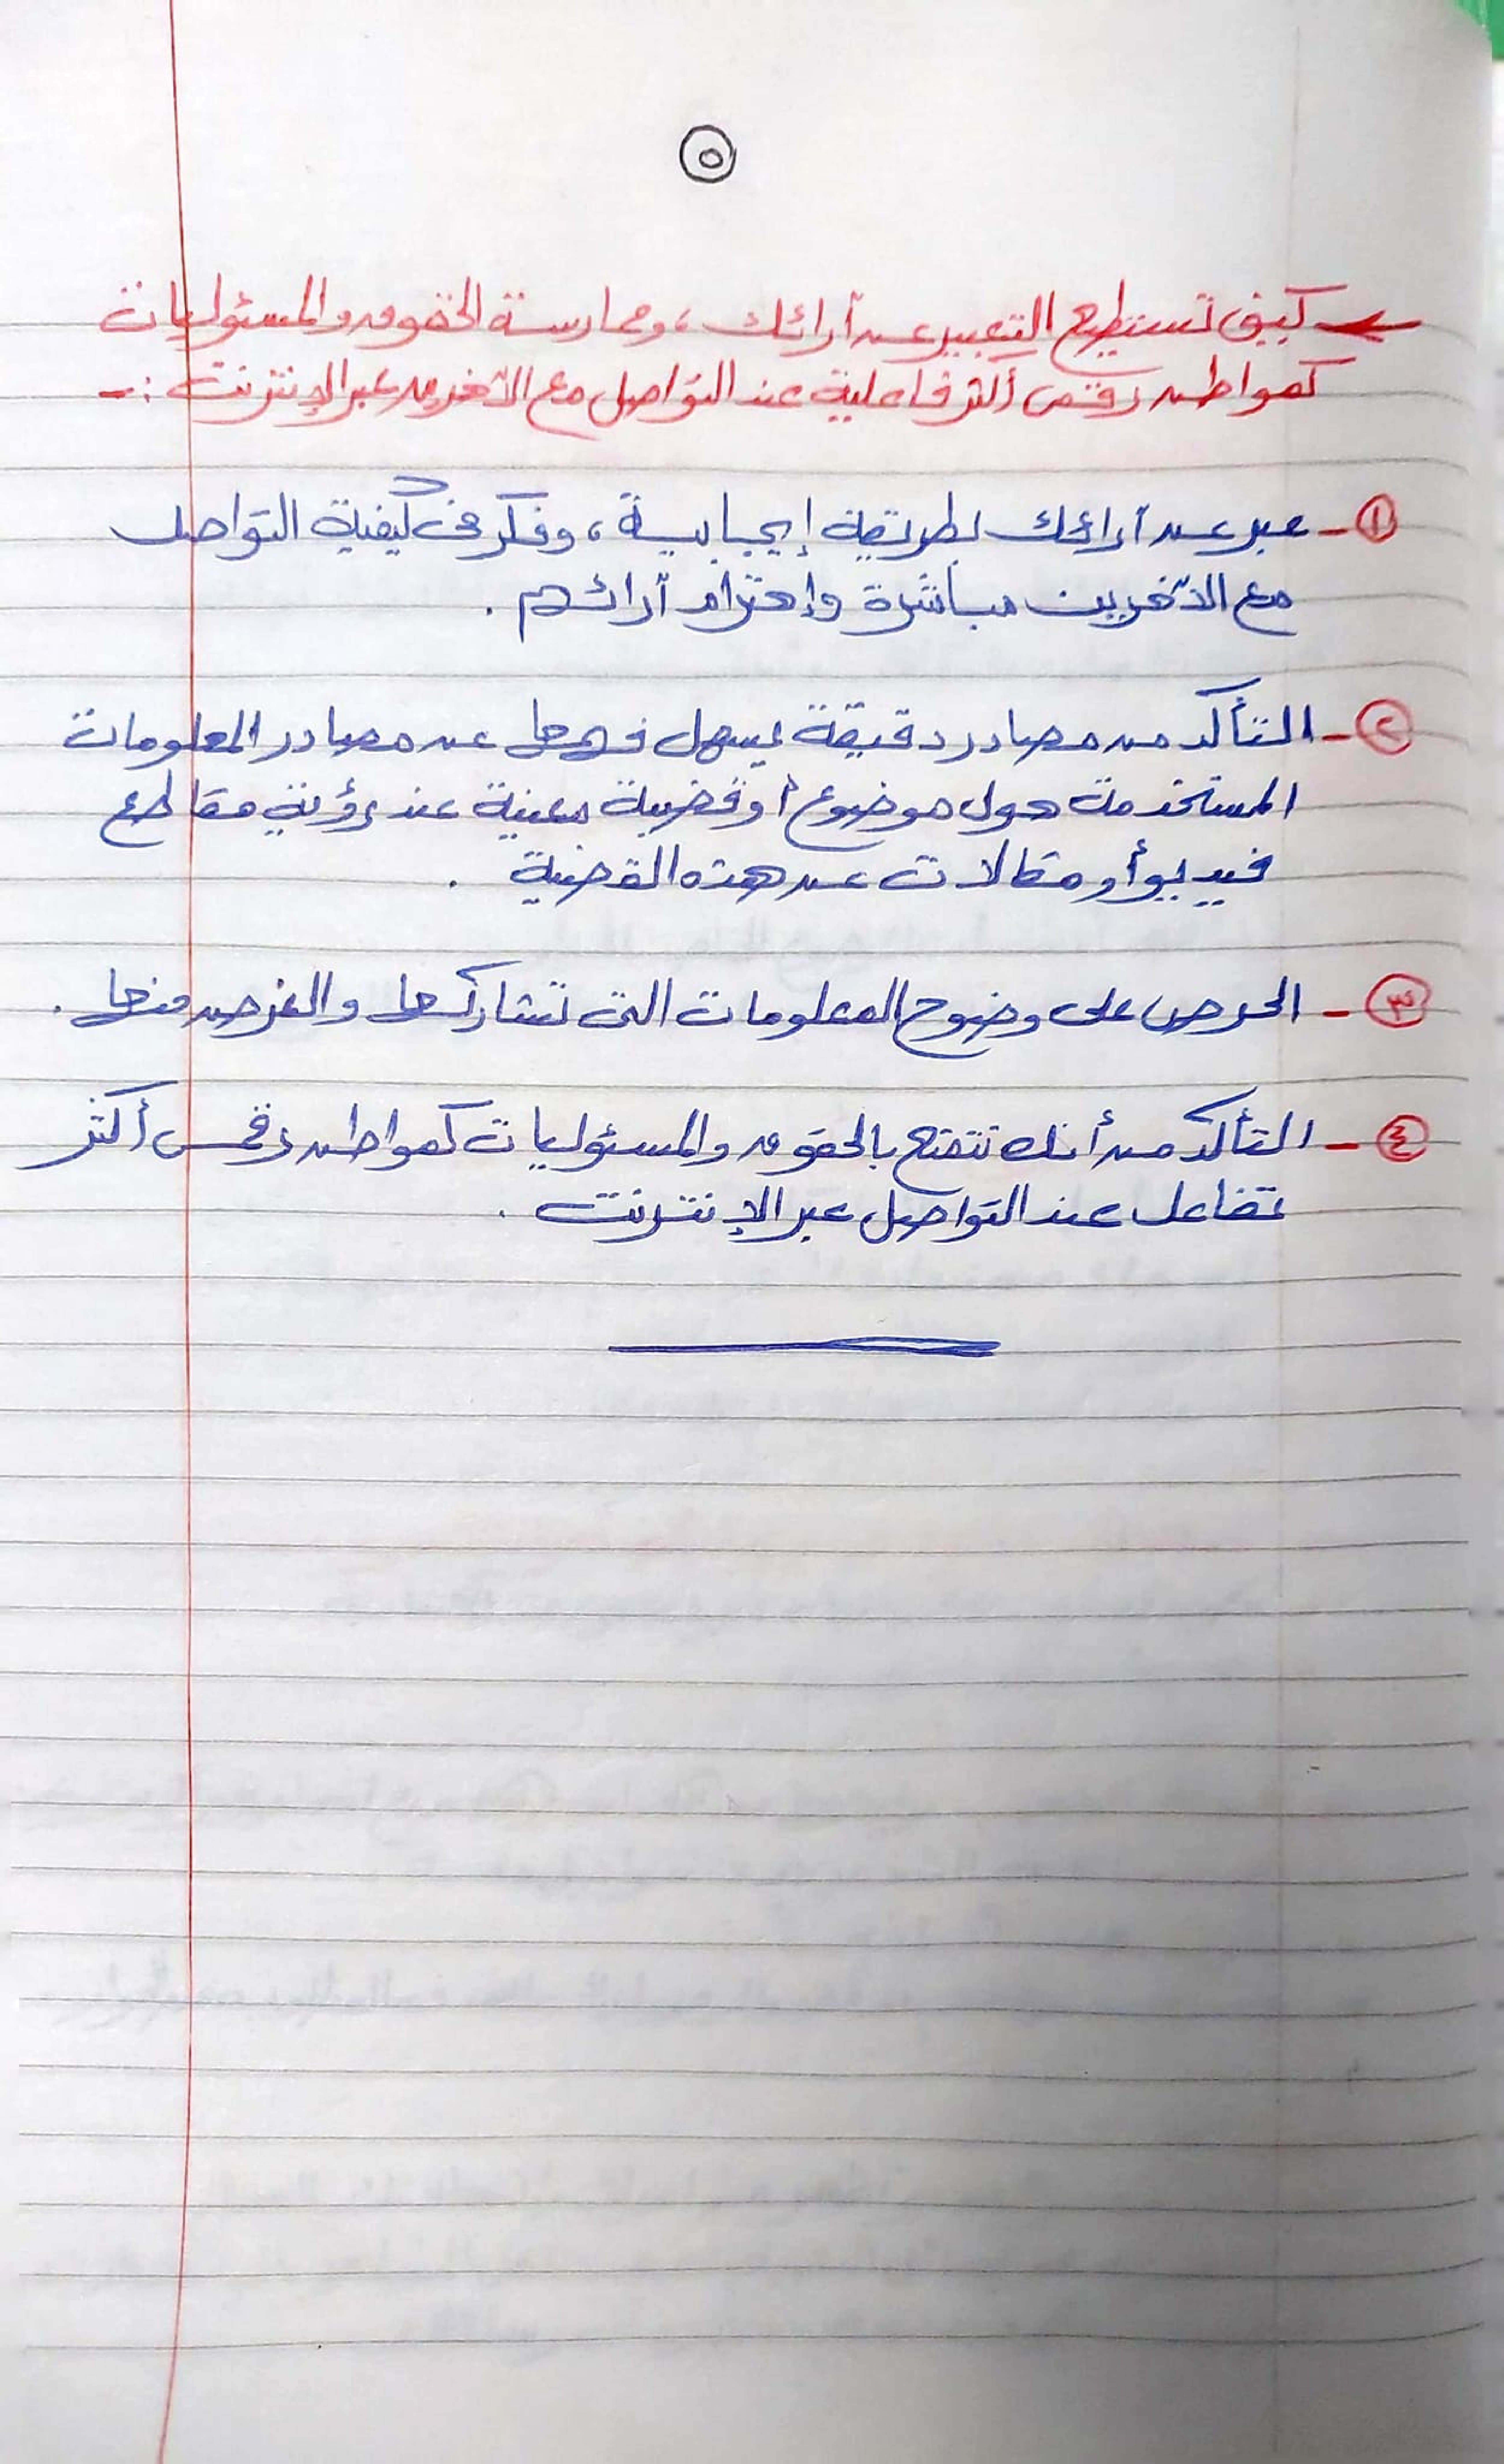 ٥
كيف تستطيع التعبير عن آرائك ، وممارسة الحقوق والمسئوليات
كمواطن رقمى أكثر فاعلية عند التواصل مع الآخرين عبر الإنترنت :-
١- عبر عن آرائك بطريقة إيجابية ، وفكر فى كيفية التواصل
مع الآخرين مباشرة وإحترام آرائهم .
٢- التأكد من مصادر دقيقة يسهل فهمها عن مصادر المعلومات
المستخدمة حول موضوع أو قضية معينة عند رؤية مقاطع
فيديو أو مقالات عن هذه القضية .
٣- الحرص على وضوح المعلومات التى تشاركها والغرض منها .
٤- التأكد من أنك تتمتع بالحقوق والمسئوليات كمواطن رقمى أكثر
تفاعل عند التواصل عبر الإنترنت .